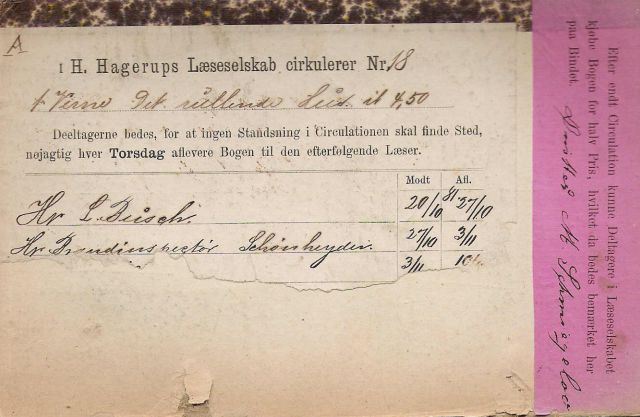 A
I H. Hagerups Læseselskab cirkulerer Nr. 18
J Verne Det rullende Hus ib 4,50
Deeltagerne bedes, for at ingen Standsning i Circulationen skal finde Sted,
nøjagtig hver Torsdag aflevere Bogen til den efterfølgende Læser.
Modt Afl.
Hr L. Busch. 20/10 81 27/10
Hr. Brandinspectør Schønheyder. 27/10 3/11
3/11 10
Efter endt Circulation kunne Deltagere i Læseselskabet
kjøbe Bogen for halv Pris, hvilket da bedes bemærket her
paa Bindet.
M. Schmiegelow